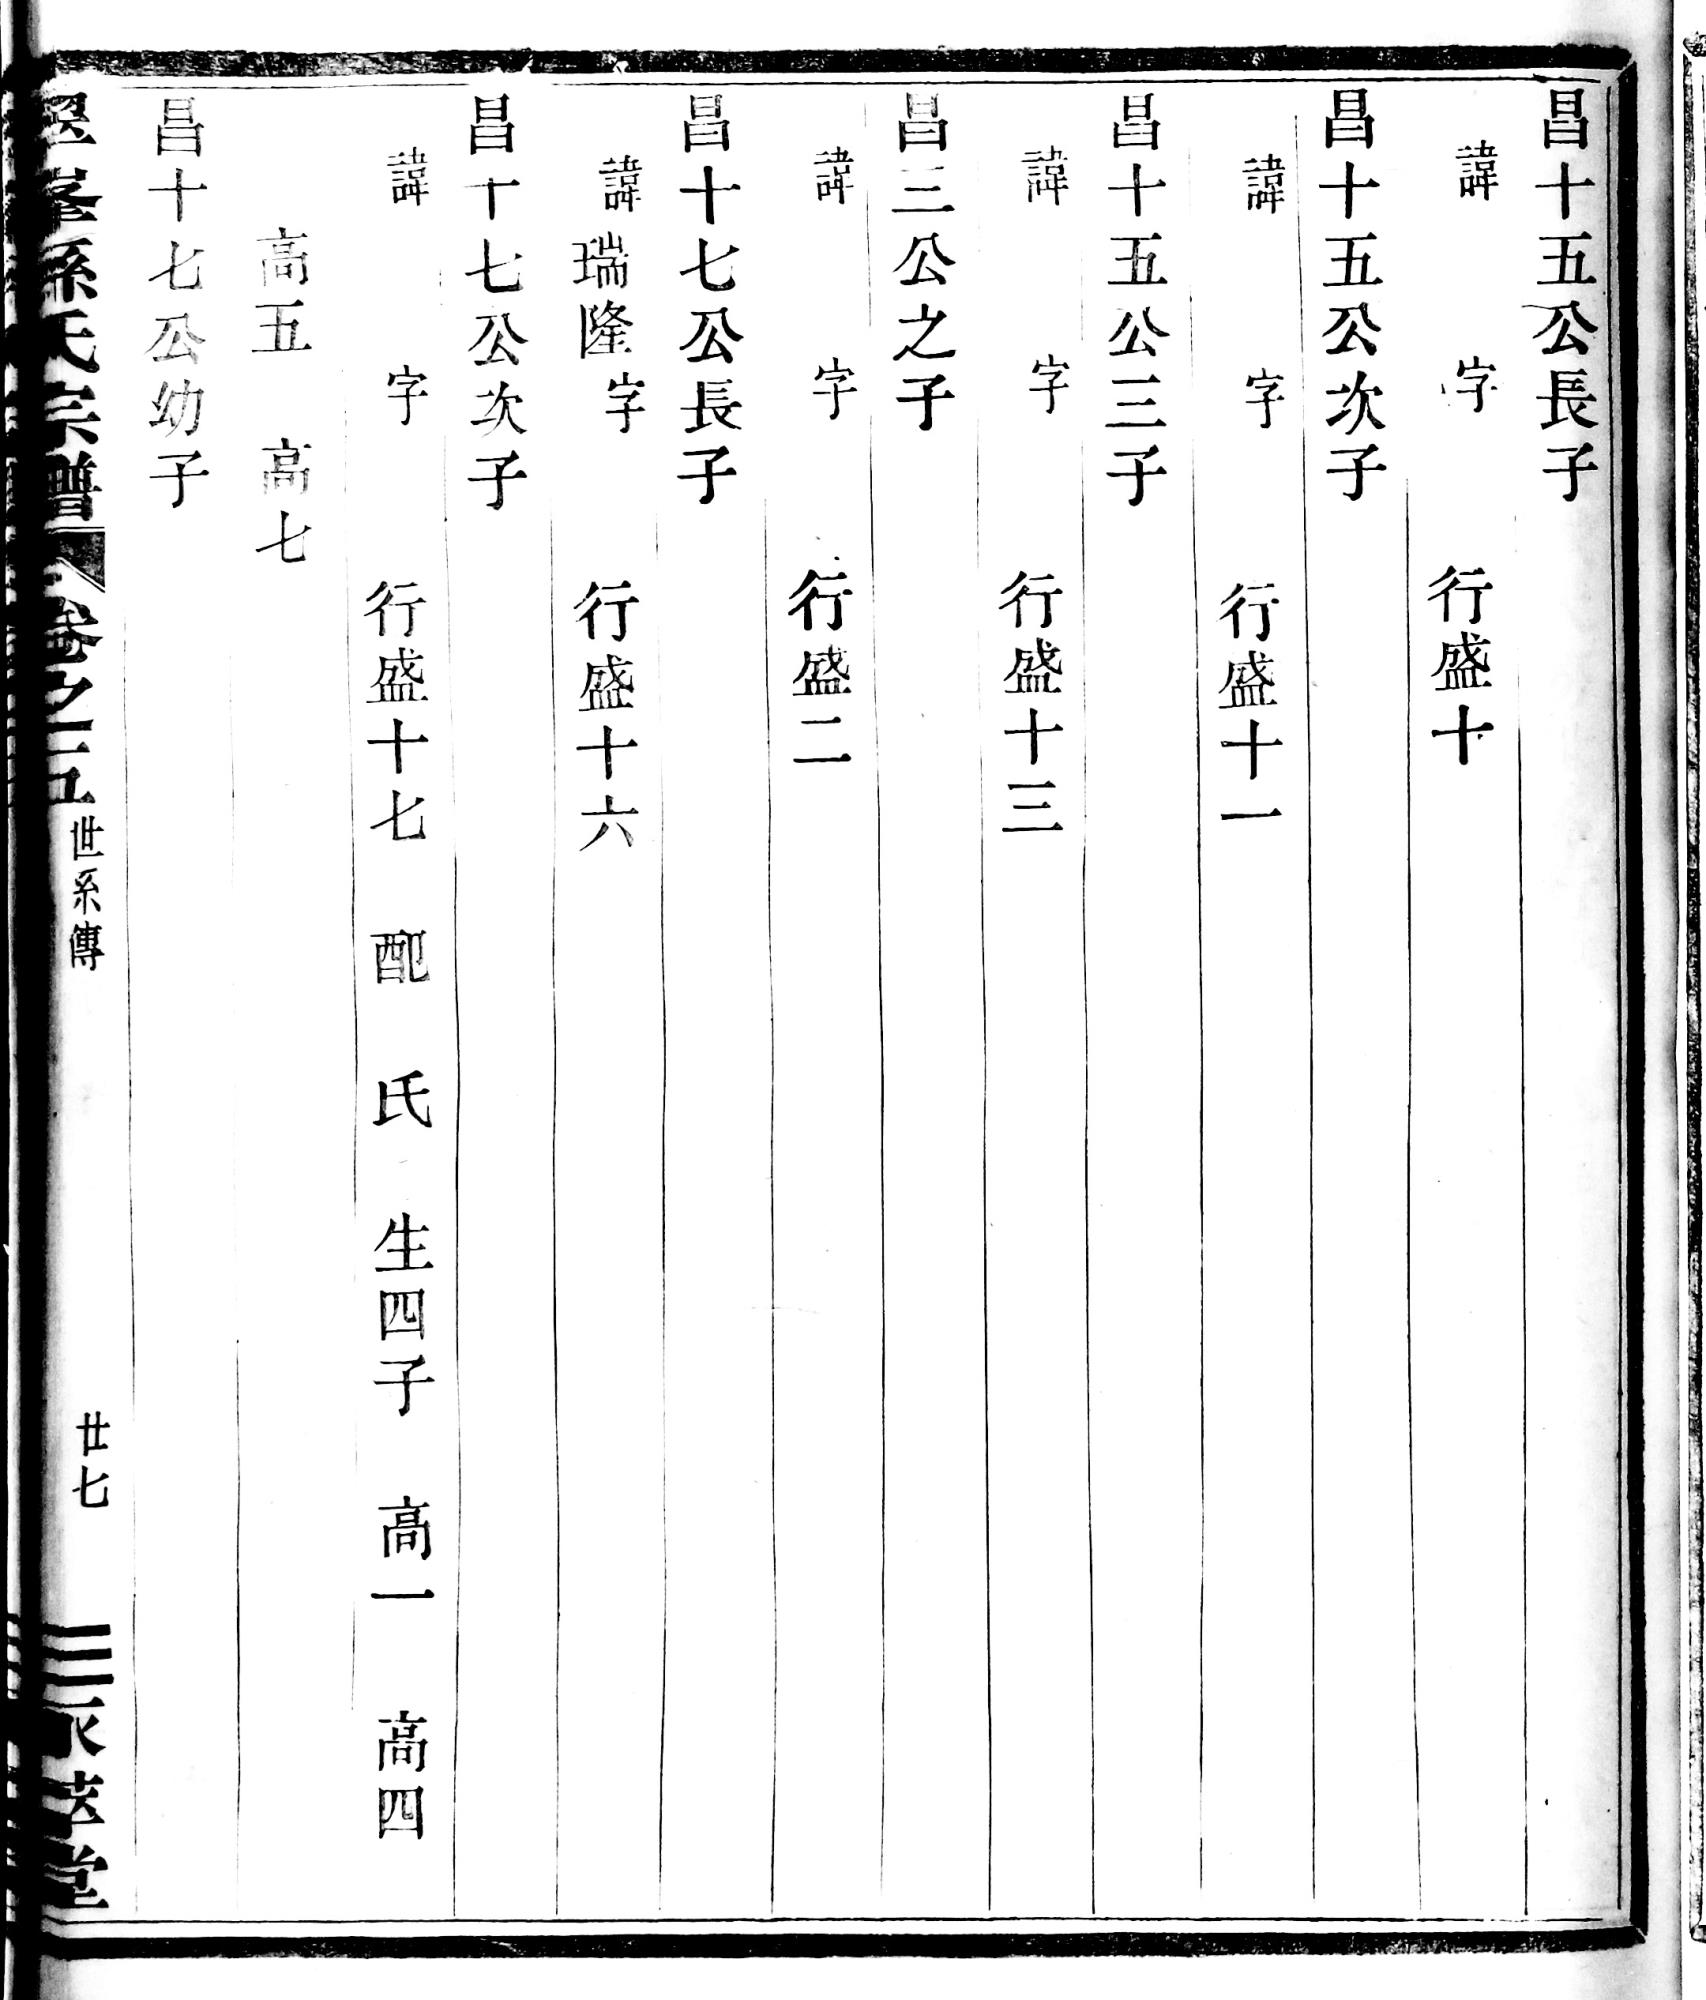 昌十五公長子
諱 字 行盛十
昌十五公次子
諱 字 行盛十一
昌十五公三子
諱 字 行盛十三
昌三公之子
諱 字 行盛二
昌十七公長子
諱瑞隆字 行盛十六
昌十七公次子
諱 字 行盛十七 配 氏 生四子 高一 高四
高五 高七
昌十七公幼子
峯孫氏宗譜 卷之五 世系傳 廿七 堂